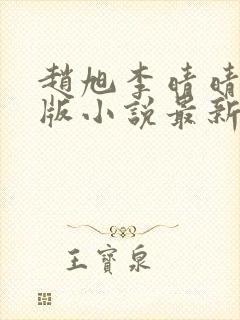 趙旭李晴晴
版小說最新
王寶泉